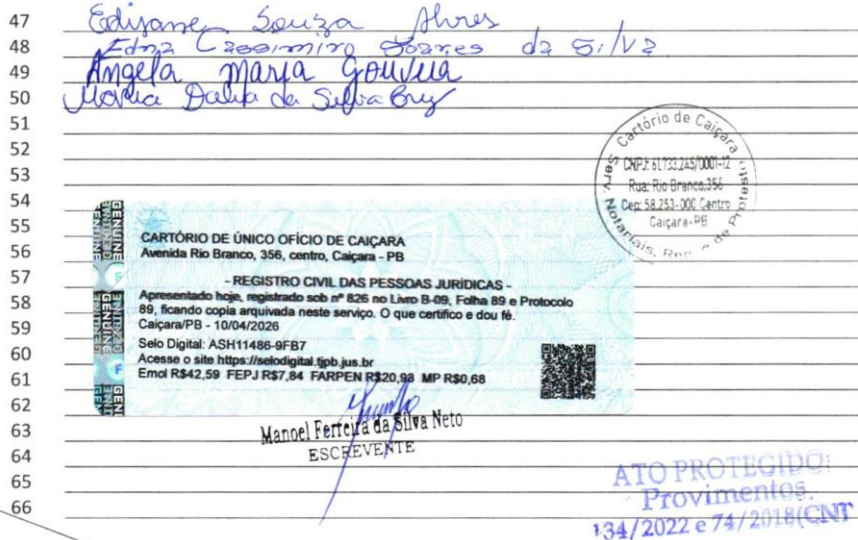 47 Edijane Souza Alves
48 Edna Cassimiro Soares da Silva
49 Angela Maria Gouveia
50 Maria Dalva da Silva Cruz
51
52
53
54
55
56
57
58
59
60
61
62
63
64
65
66
Cartório de Caiçara
CNPJ: 61.733.245/0001-12
Rua: Rio Branco,356
Cep: 58.253-000 Centro
Caiçara-PB
Serv. Notariais, Reg. e de Protesto
GENUINE
CARTÓRIO DE ÚNICO OFÍCIO DE CAIÇARA
Avenida Rio Branco, 356, centro, Caiçara - PB
- REGISTRO CIVIL DAS PESSOAS JURÍDICAS -
Apresentado hoje, registrado sob nº 826 no Livro B-09, Folha 89 e Protocolo
89, ficando copia arquivada neste serviço. O que certifico e dou fé.
Caiçara/PB - 10/04/2026
Selo Digital: ASH11486-9FB7
Acesse o site https://selodigital.tjpb.jus.br
Emol R$42,59 FEPJ R$7,84 FARPEN R$20,98 MP R$0,68
Manoel Ferreira da Silva Neto
ESCREVENTE
ATO PROTEGIDO:
Provimentos.
134/2022 e 74/2018(CNT